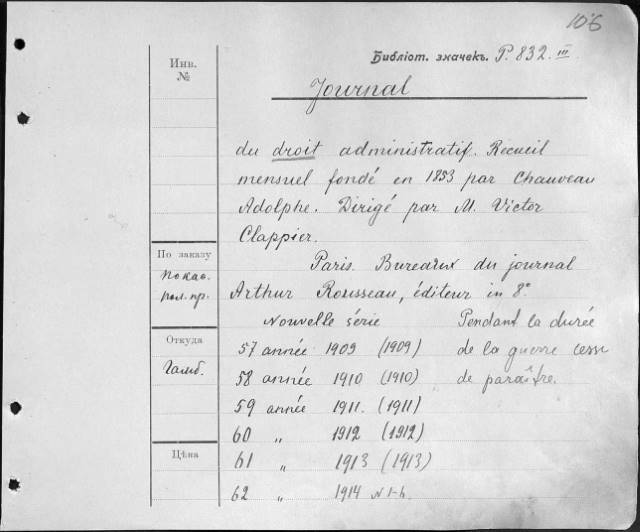 106
Библіот. значекъ. P. 832. III
Инв.
№
Journal
du droit administratif. Recueil
mensuel fondé en 1853 par Chauveau
Adolphe. Dirigé par M. Victor
Clappier.
По заказу
пол. пр.
Paris. Bureaux du journal
Arthur Rousseau, éditeur in 8°
Откуда
Гамб.
Nouvelle série
57 année 1909 (1909)
58 année 1910 (1910)
59 année 1911. (1911)
60 " 1912 (1912)
61 " 1913 (1913)
62 " 1914 N 1-6.
Pendant la durée
de la guerre cesse
de paraître.
Цѣна